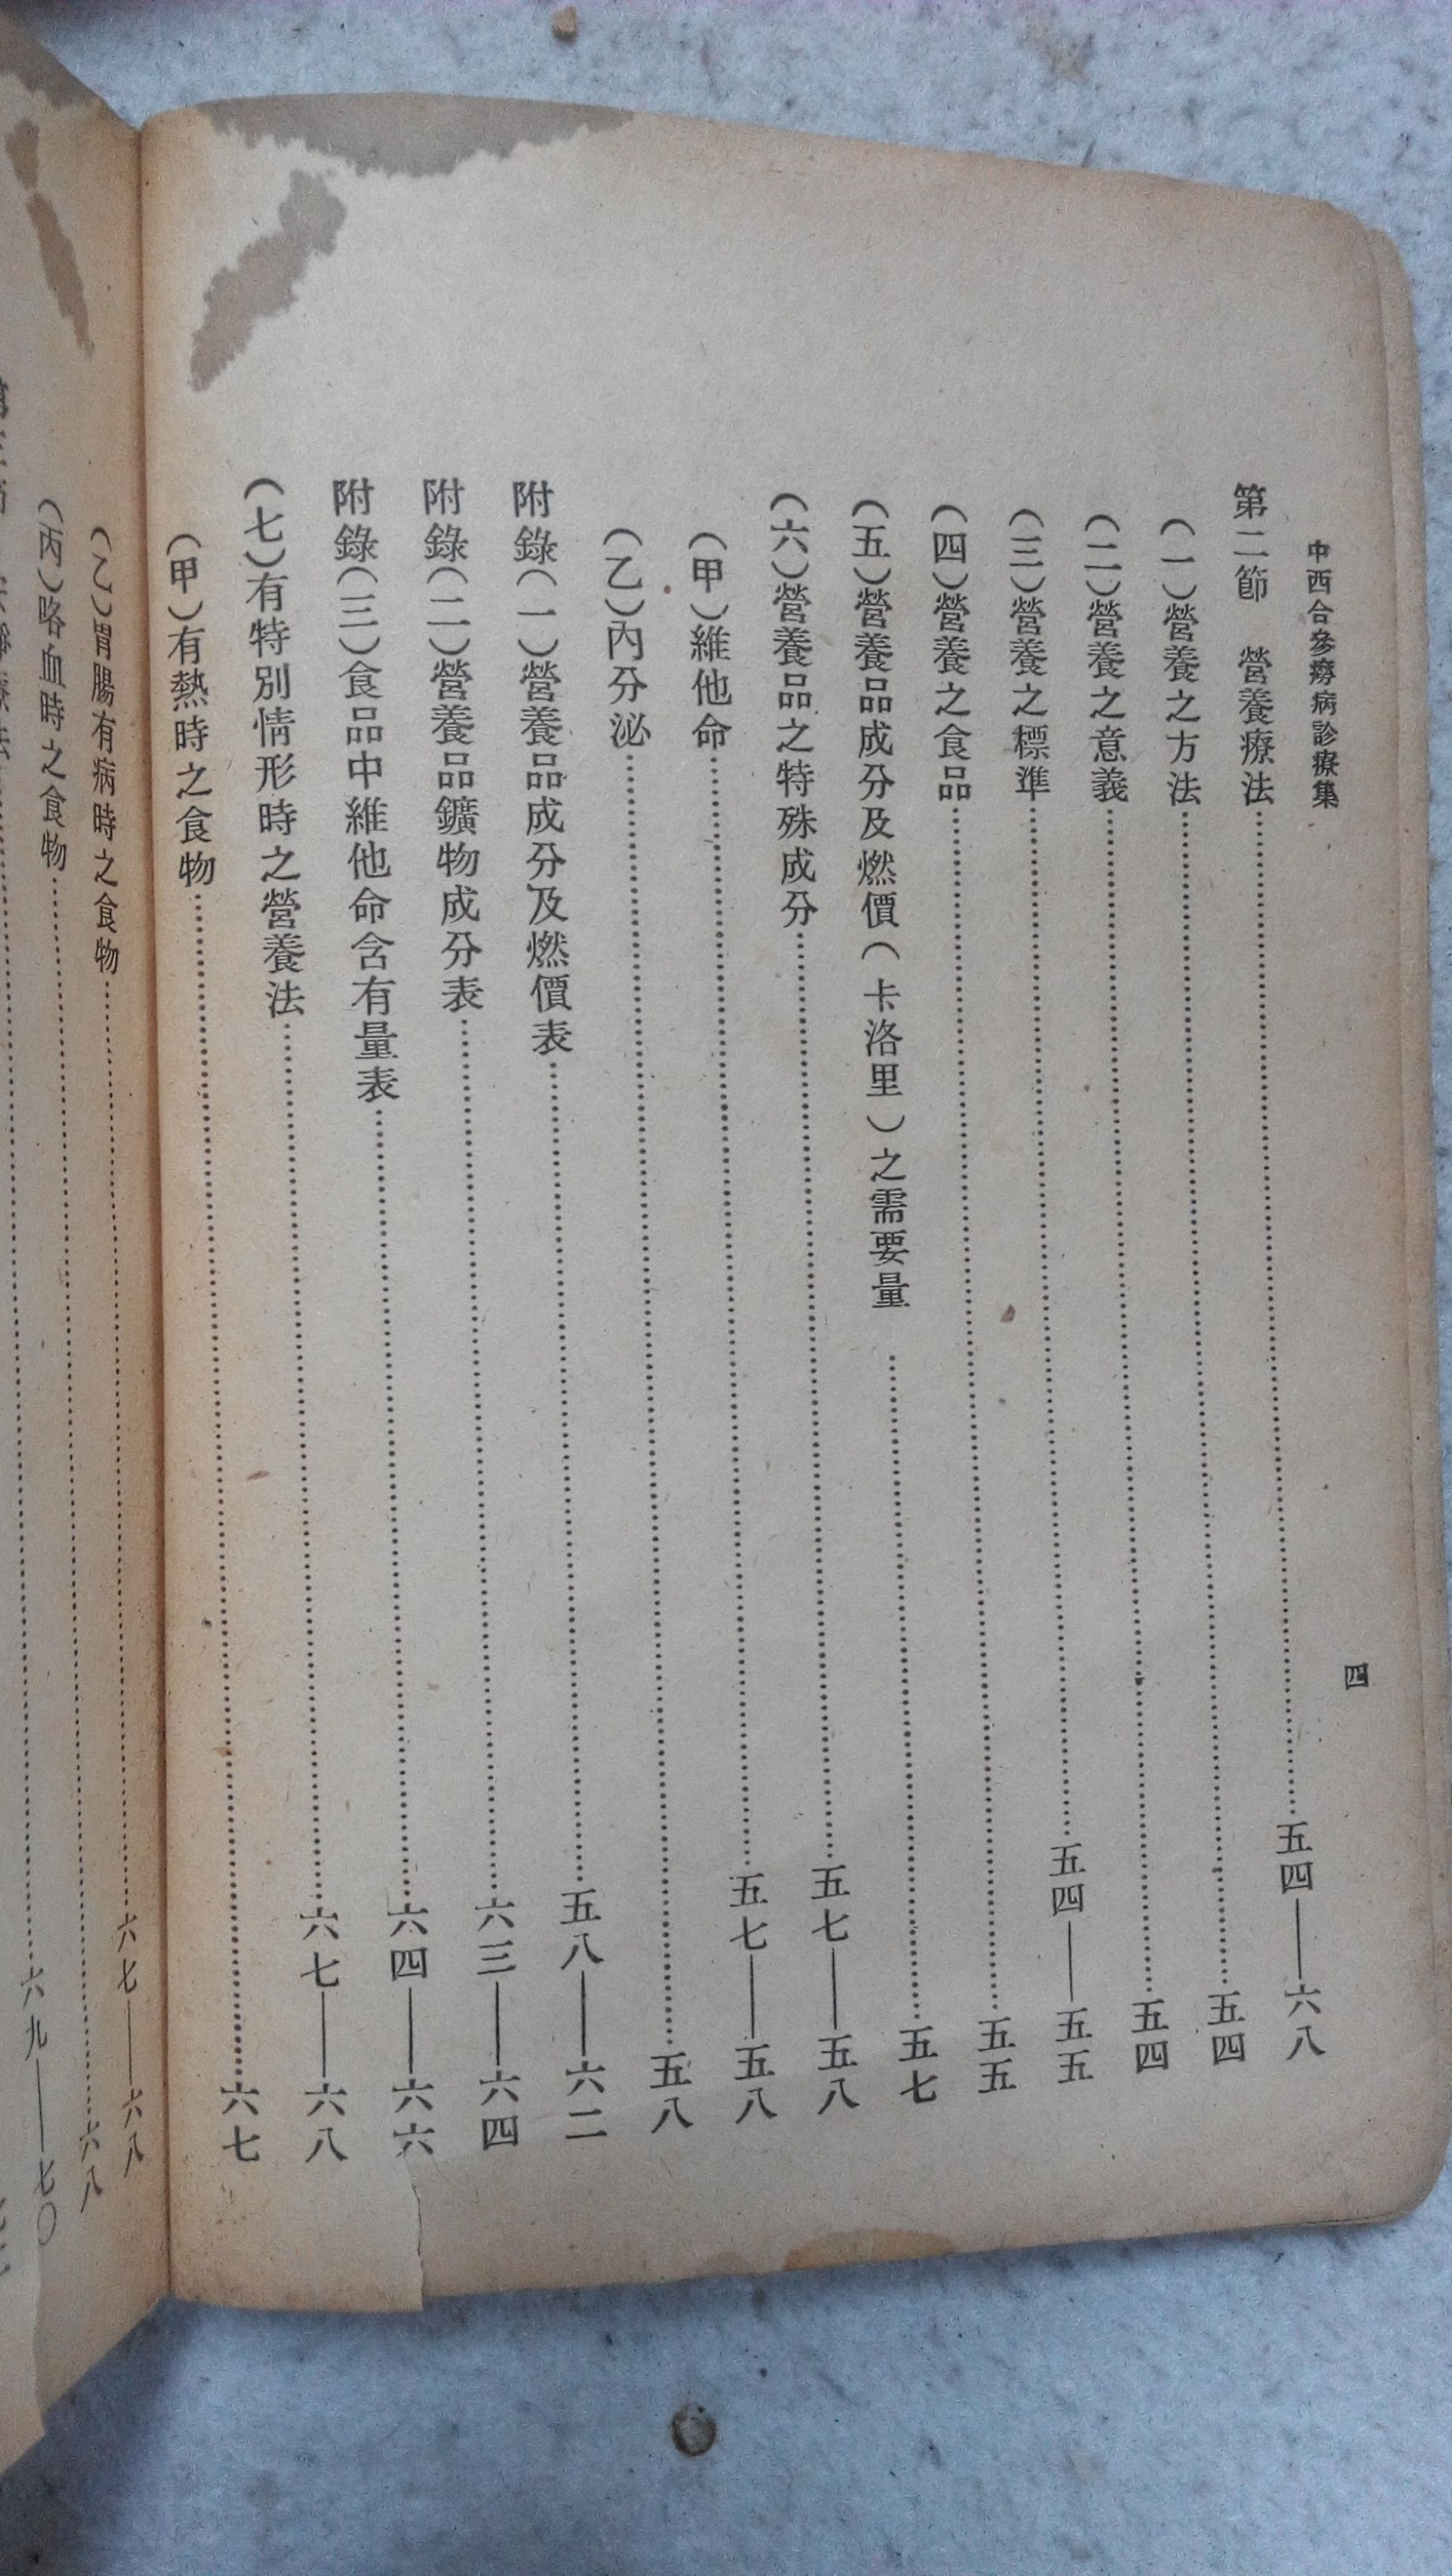 中西合參癆病診療集
四
第二節 營養療法……五四——六八
(一)營養之方法……五四
(二)營養之意義……五四
(三)營養之標準……五四——五五
(四)營養之食品……五五
(五)營養品成分及燃價(卡洛里)之需要量……五七
(六)營養品之特殊成分……五七——五八
(甲)維他命……五七——五八
(乙)內分泌……五八
附錄(一)營養品成分及燃價表……五八——六二
附錄(二)營養品鑛物成分表……六三——六四
附錄(三)食品中維他命含有量表……六四——六六
(七)有特別情形時之營養法……六七——六八
(甲)有熱時之食物……六七
(乙)胃腸有病時之食物……六七——六八
(丙)咯血時之食物……六八
六九——七〇